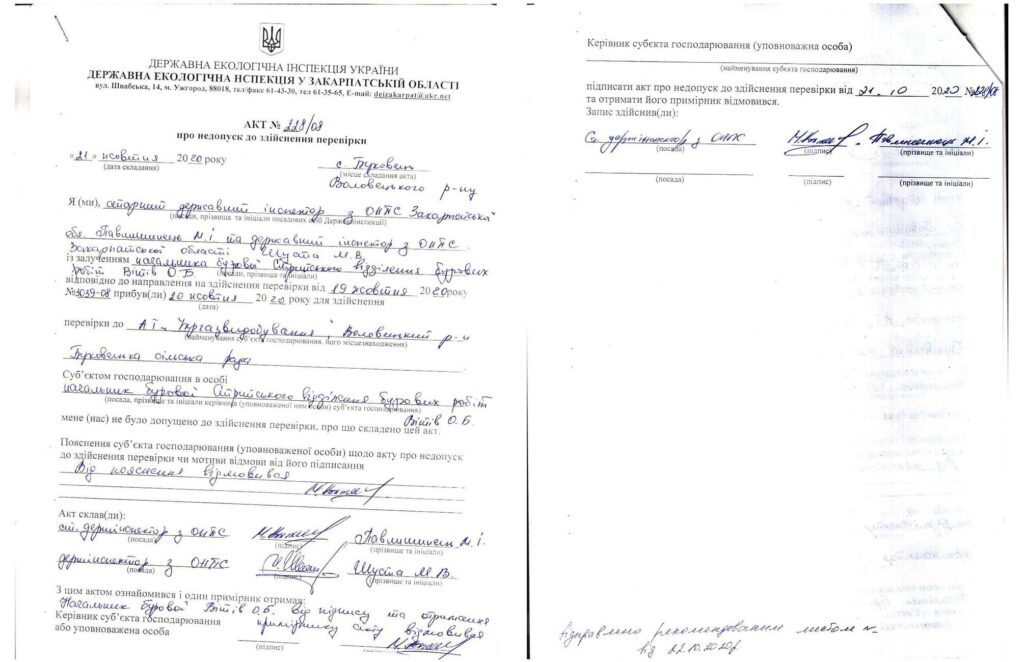 ДЕРЖАВНА ЕКОЛОГІЧНА ІНСПЕКЦІЯ УКРАЇНИ
ДЕРЖАВНА ЕКОЛОГІЧНА НСПЕКЦІЯ У ЗАКАРПАТСЬКІЙ ОБЛАСТІ
вул. Швабська, 14, м. Ужгород, 88018, тел/факс 61-43-30, тел 61-35-65, E-mail: deizakarpat@ukr.net
АКТ № 228/08
про недопуск до здійснення перевірки
«21» жовтня 2020 року
(дата складання)
с. Буковець
(місце складання акта)
Воловецького р-ну
Я (ми), старший державний інспектор з ОНПС Закарпатської
(посади, прізвища та ініціали посадових осіб Держекоінспекції)
обл. Павлишинець М.І. та державний інспектор з ОНПС
Закарпатської області Шуста М.В.
із залученням начальника бурової Стрийського відділення бурових
робіт Вітів О.Б
(посади, прізвища та ініціали)
відповідно до направлення на здійснення перевірки від 19 жовтня 2020 року
№3039-08 прибув(ли) 20 жовтня 2020 року для здійснення
(дата)
перевірки до АТ "Укргазвидобування", Воловецький р-н
(найменування суб'єкта господарювання, його місцезнаходження)
Буковецька сільська рада
Суб'єктом господарювання в особі
начальник бурової Стрийського відділення бурових робіт
(посада, прізвище та ініціали керівника (уповноваженої ним особи) суб'єкта господарювання)
Вітів О.Б.
мене (нас) не було допущено до здійснення перевірки, про що складено цей акт.
Пояснення суб'єкта господарювання (уповноваженої особи) щодо акту про недопуск
до здійснення перевірки чи мотиви відмови від його підписання
Від пояснення відмовився
Акт склав(ли):
ст. держінспектор з ОНПС Павлишинець М.І.
(посада) (підпис) (прізвище та ініціали)
держінспектор з ОНПС Шуста М.В.
(посада) (підпис) (прізвище та ініціали)
З цим актом ознайомився і один примірник отримав:
Начальник бурової Вітів О.Б. від підпису та отримання
Керівник суб'єкта господарювання примірнику акту відмовився
або уповноважена особа
(підпис)
Керівник субєкта господарювання (уповноважна особа)
(найменування субєкта господарювання)
підписати акт про недопуск до здійснення перевірки від 21.10 2020 №228/08
та отримати його примірник відмовився.
Запис здійснив(ли):
Ст. держінспектор з ОНПС Павлишинець М.І.
(посада) (підпис) (прізвище та ініціали)
(посада) (підпис) (прізвище та ініціали)
Відправлено рекомендованим листом
від 22.10.2020р.